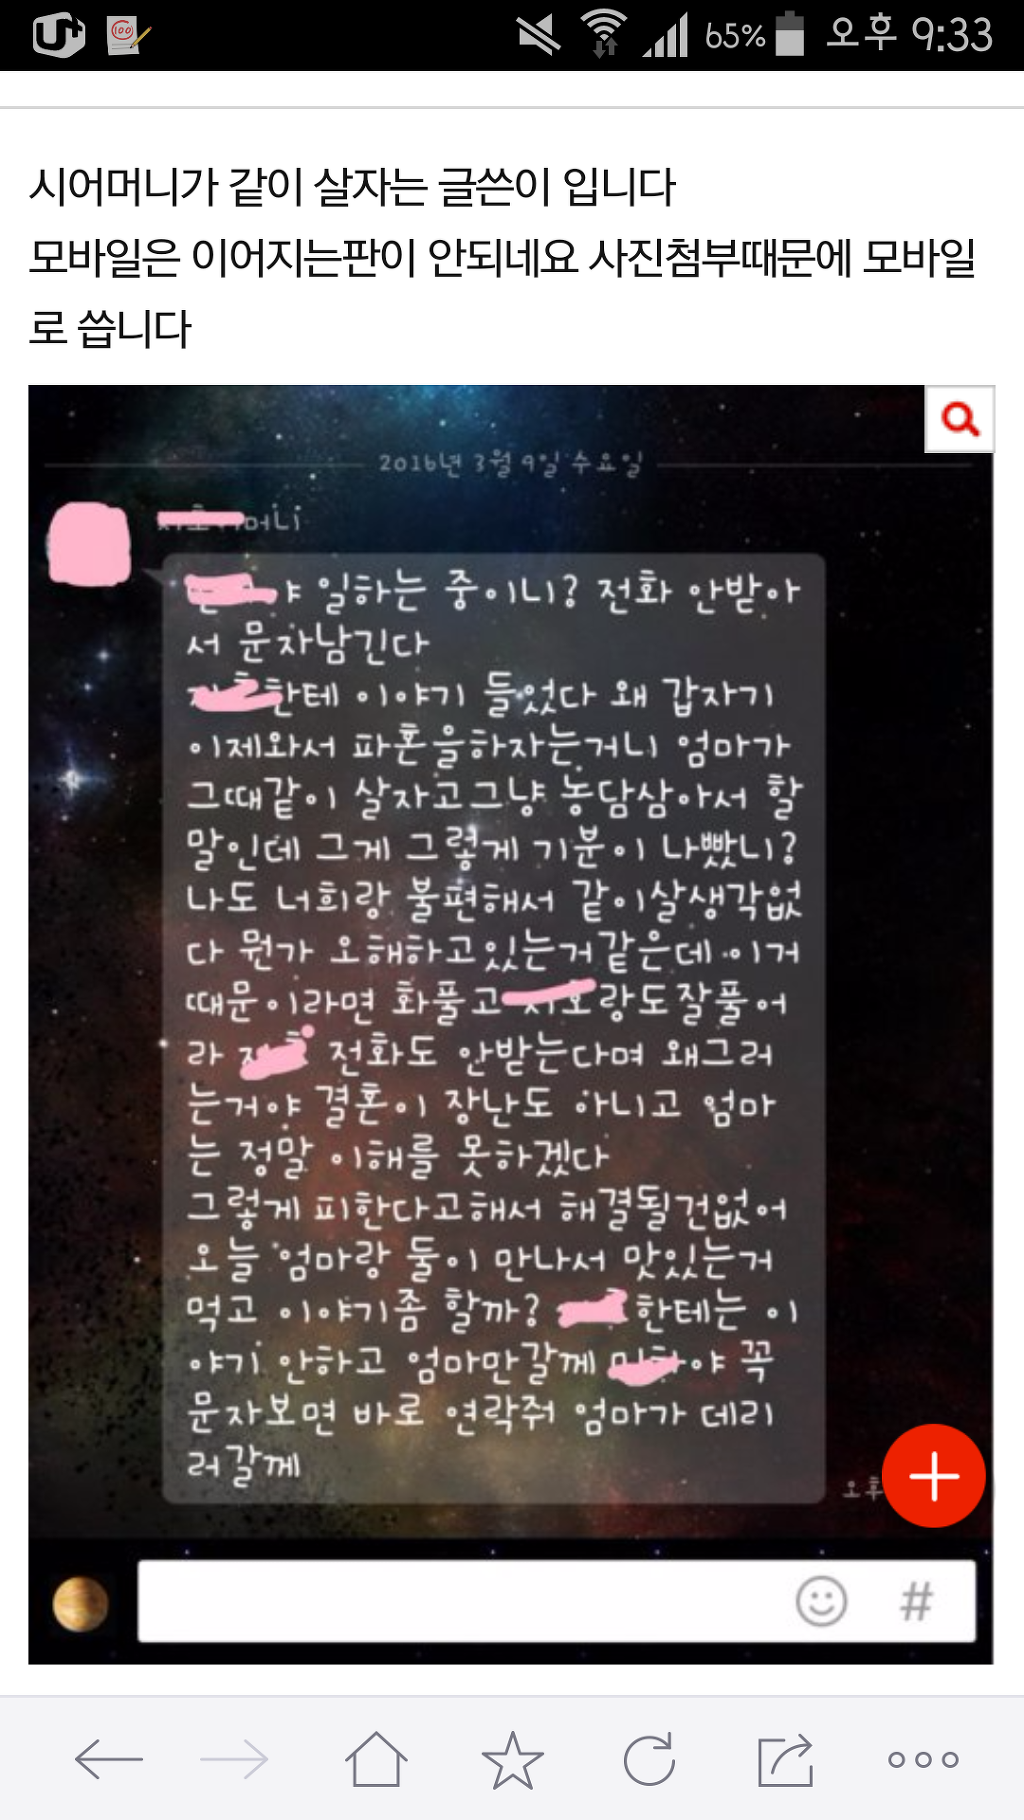 U+ 100 65% 오후 9:33
시어머니가 같이 살자는 글쓴이 입니다
모바일은 이어지는판이 안되네요 사진첨부때문에 모바일
로 씁니다
2016년 3월 9일 수요일
머니
야 일하는 중이니? 전화 안받아
서 문자남긴다
한테 이야기 들었다 왜 갑자기
이제와서 파혼을하자는거니 엄마가
그때같이 살자고그냥 농담삼아서 할
말인데 그게 그렇게 기분이 나빴니?
나도 너희랑 불편해서 같이살생각없
다 뭔가 오해하고있는거같은데 이거
때문이라면 화풀고 랑도잘풀어
라 전화도 안받는다며 왜그러
는거야 결혼이 장난도 아니고 엄마
는 정말 이해를 못하겠다
그렇게 피한다고해서 해결될건없어
오늘 엄마랑 둘이 만나서 맛있는거
먹고 이야기좀 할까? 한테는 이
야기 안하고 엄마만갈께 야 꼭
문자보면 바로 연락줘 엄마가 데리
러갈께
오후
#